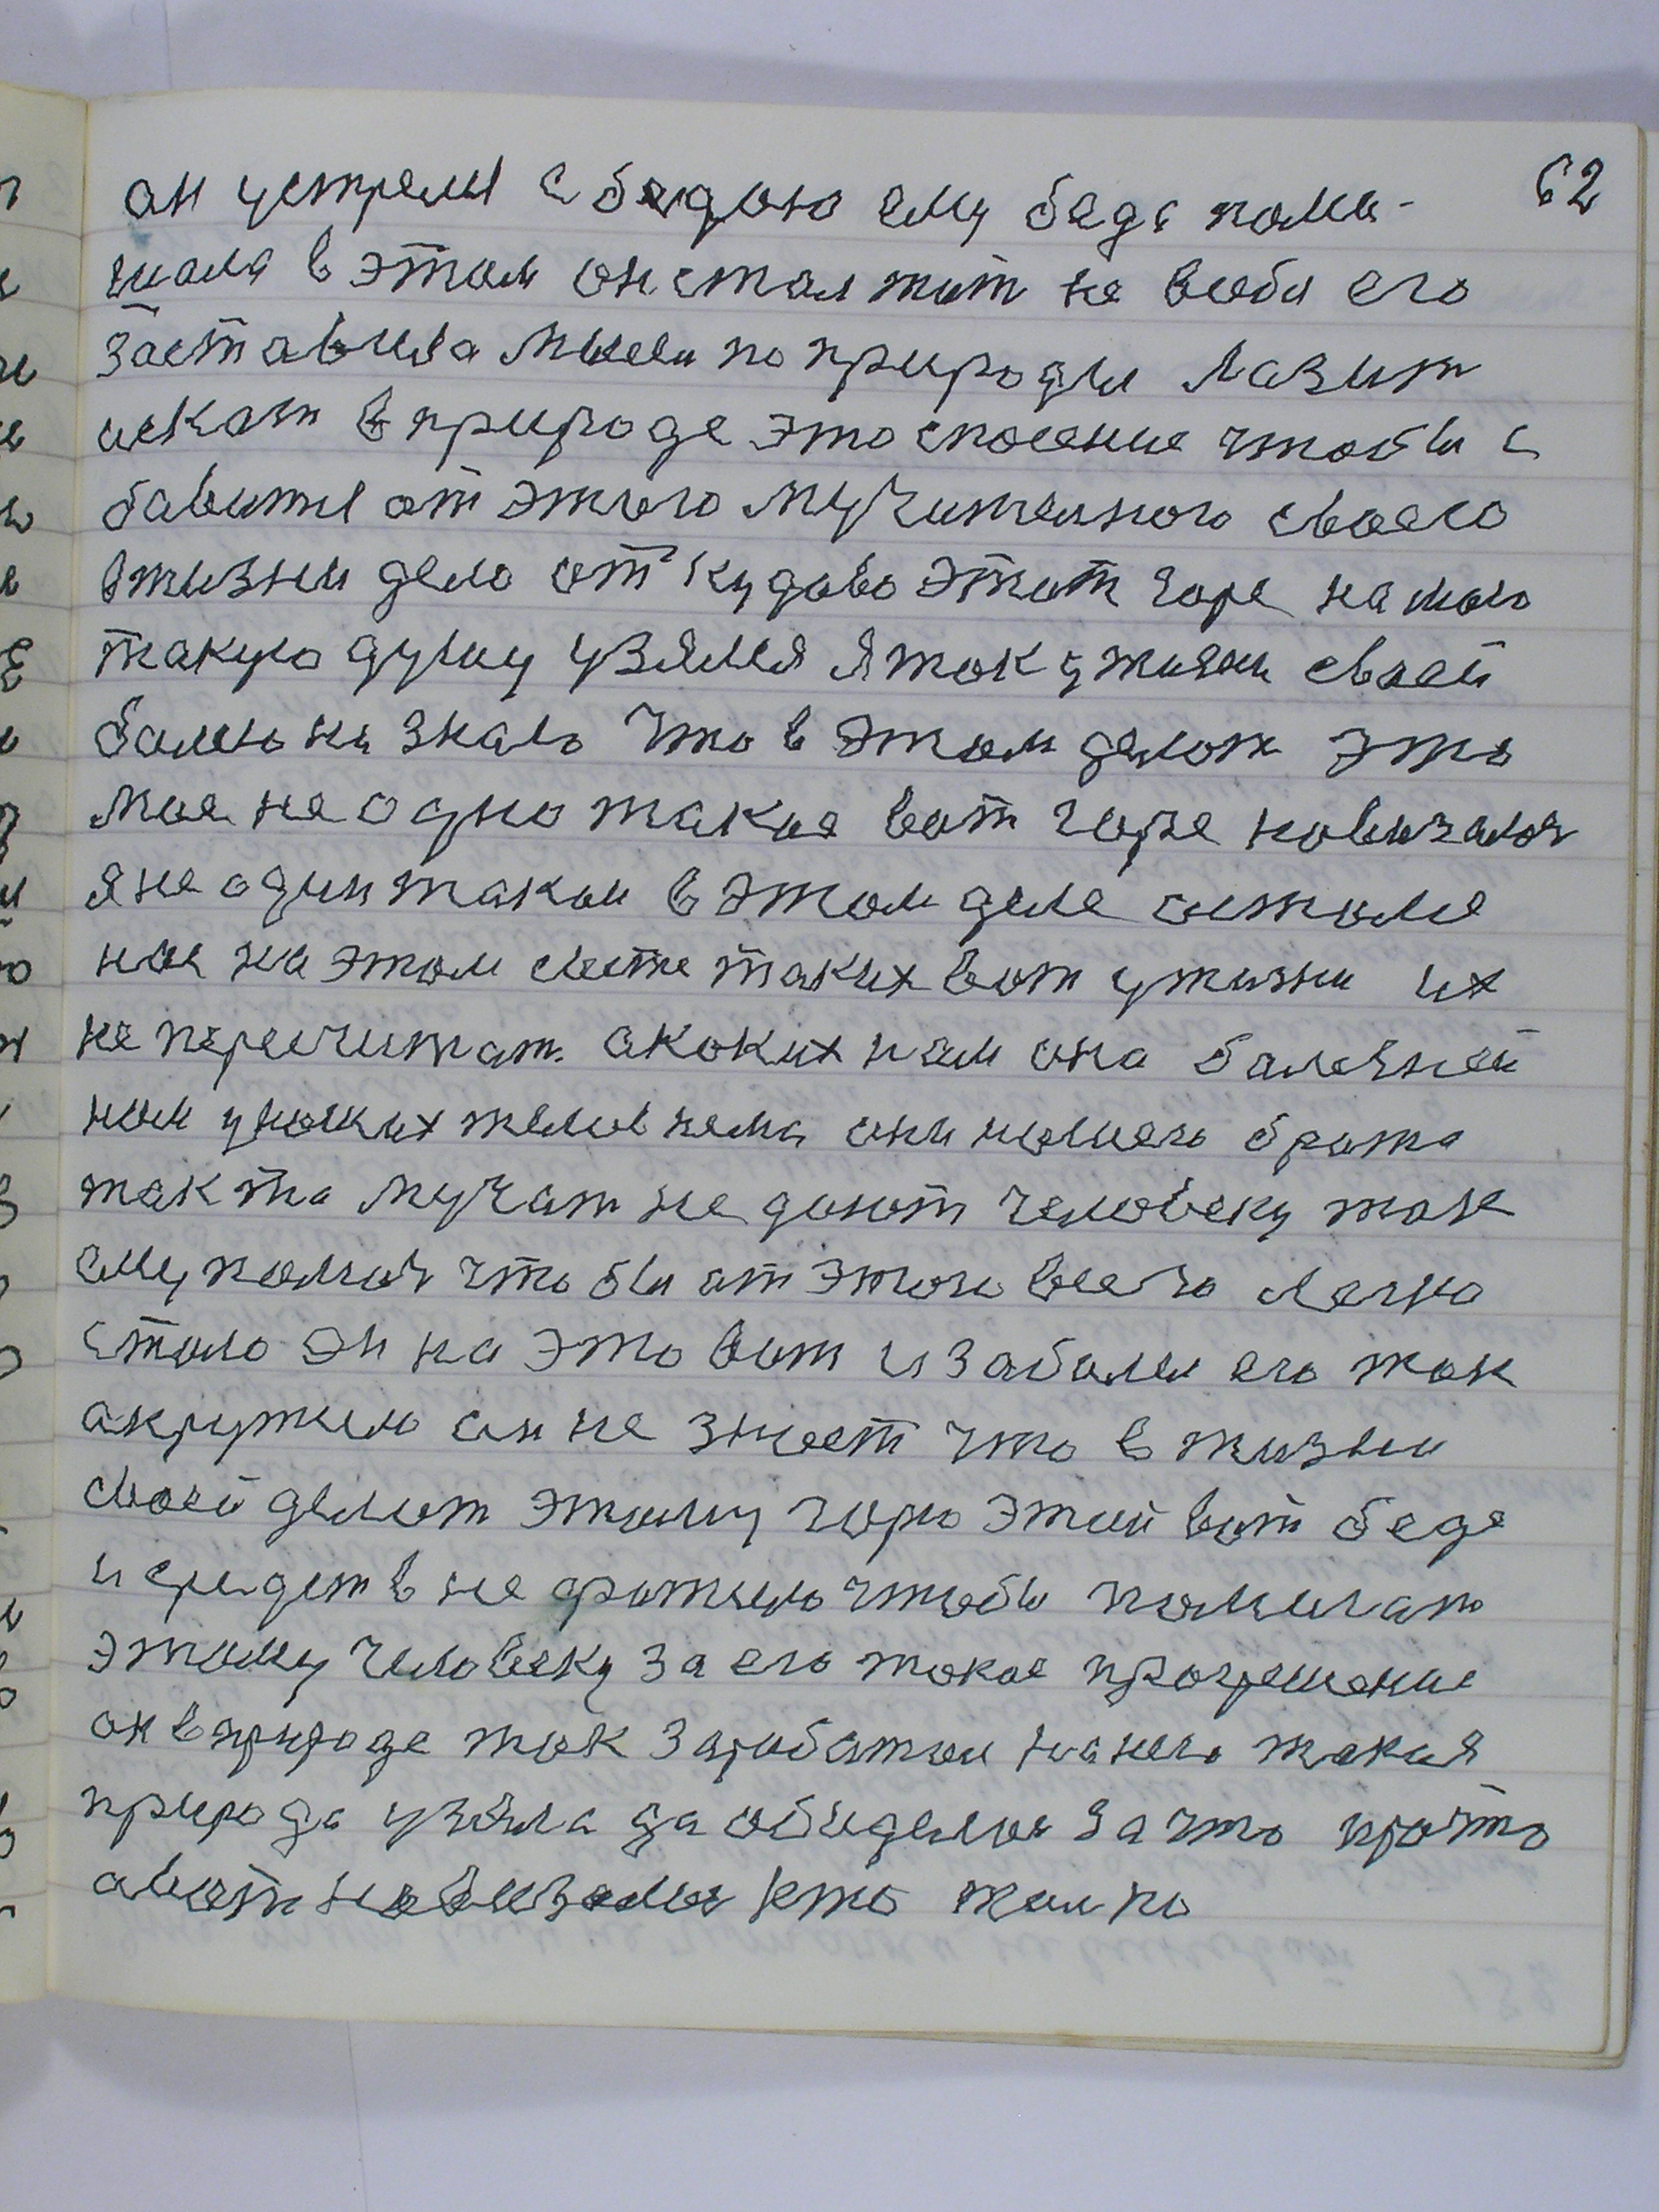 62
он устрелся с бедою ему беда поме-
шала в этом он стал жит не в себя его
заставила мысли по природы лазит
искат в природе это спосение чтобы с
бавится от этого мучителного своего
в жизни дело от кудаво этот горе на мою
такую душу узялся я так у жизни своей
болею не знаю что в этом делат это
мое не одно такое вот горе
я не один такой в этом деле
на этом свете таких вот у жизни их
не пересчитат а каких
они нашего брата
так то мучат не дают человеку так
ему помоч что бы от этого всего легко
стало он на это вот и заболел его так
окружило он не знает что в жизни
своей делат этому горю этой вот беде
и средств не фатило чтобы помогат
этому человеку за его такое прогрешение
он в природе так заработал на него такая
природа узяла да обиделас за что про что
а вот кто жил по